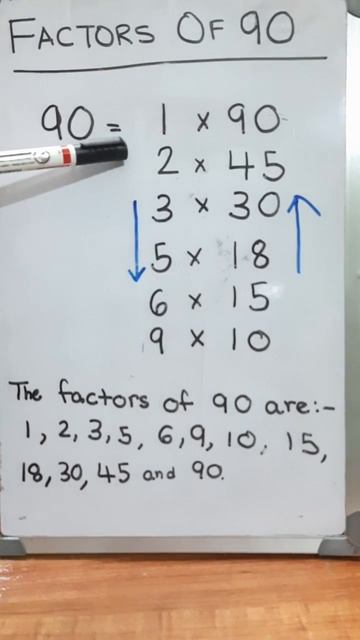 FACTORS OF 90
90 = 1 x 90
2 x 45
3 x 30
5 x 18
6 x 15
9 x 10
The factors of 90 are:-
1, 2, 3, 5, 6, 9, 10, 15,
18, 30, 45 and 90.